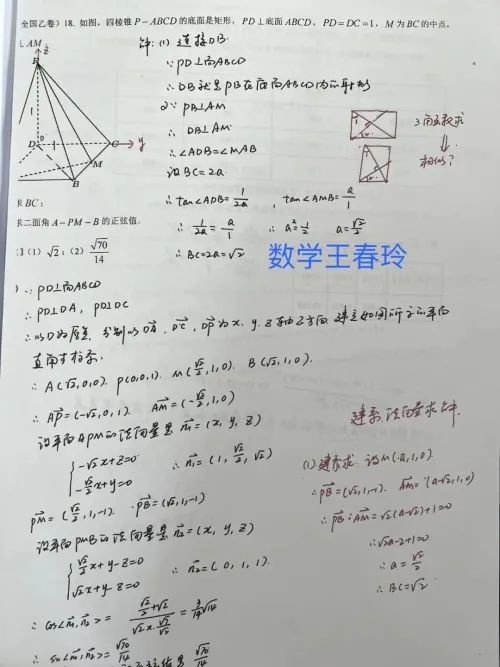 全国乙卷）18. 如图，四棱锥 P－ABCD 的底面是矩形，PD⊥底面 ABCD，PD＝DC＝1，M 为 BC 的中点，
⊥AM
z
P
1
D
1
C
y
M
B
BC；
二面角 A－PM－B 的正弦值.
（1）√2；（2）√70/14
解：(1) 连接DB.
∵PD⊥面ABCD
∴DB就是PB在底面ABCD内的射影
又∵PB⊥AM
∴ DB⊥AM
∴∠ADB=∠MAB
设BC=2a.
∴tan∠ADB=1/2a , tan∠AMB=a/1
∴ 1/2a = a/1 ∴ a²=1/2 a=√2/2
∴BC=2a=√2
三角函数求
⇓
相似？
数学王春玲
∵PD⊥面ABCD
∴PD⊥DA, PD⊥DC
∴以D为原点, 分别以DA, DC, DP为x, y, z轴正方向 建立如图所示的空间
直角坐标系.
∴ A(√2,0,0). P(0,0,1). M(√2/2,1,0). B(√2,1,0).
∴ AP=(-√2,0,1) AM=(-√2/2,1,0)
设平面APM的法向量是 n₁=(x, y, z)
{-√2x+z=0
-√2/2x+y=0 ∴ n₁=(1, √2/2, √2)
PM=(√2/2,1,-1). PB=(√2,1,-1)
设平面PMB的法向量是 n₂=(x, y, z)
{√2/2x+y-z=0
√2x+y-z=0 ∴ n₂=(0,1,1).
∴ cos<n₁,n₂>= (√2/2+√2)/(√2×√7/√2) = 3/14√14
∴ sin<n₁,n₂>=√70/14
√70/14
建系, 法向量求解.
(1) 建系求. 设M(a,1,0).
∴PB=(√2,1,-1). AM=(a-√2,1,0)
∴PB·AM=√2(a-√2)+1=0
∴√2a-2+1=0
∴a=√2/2
∴BC=√2.